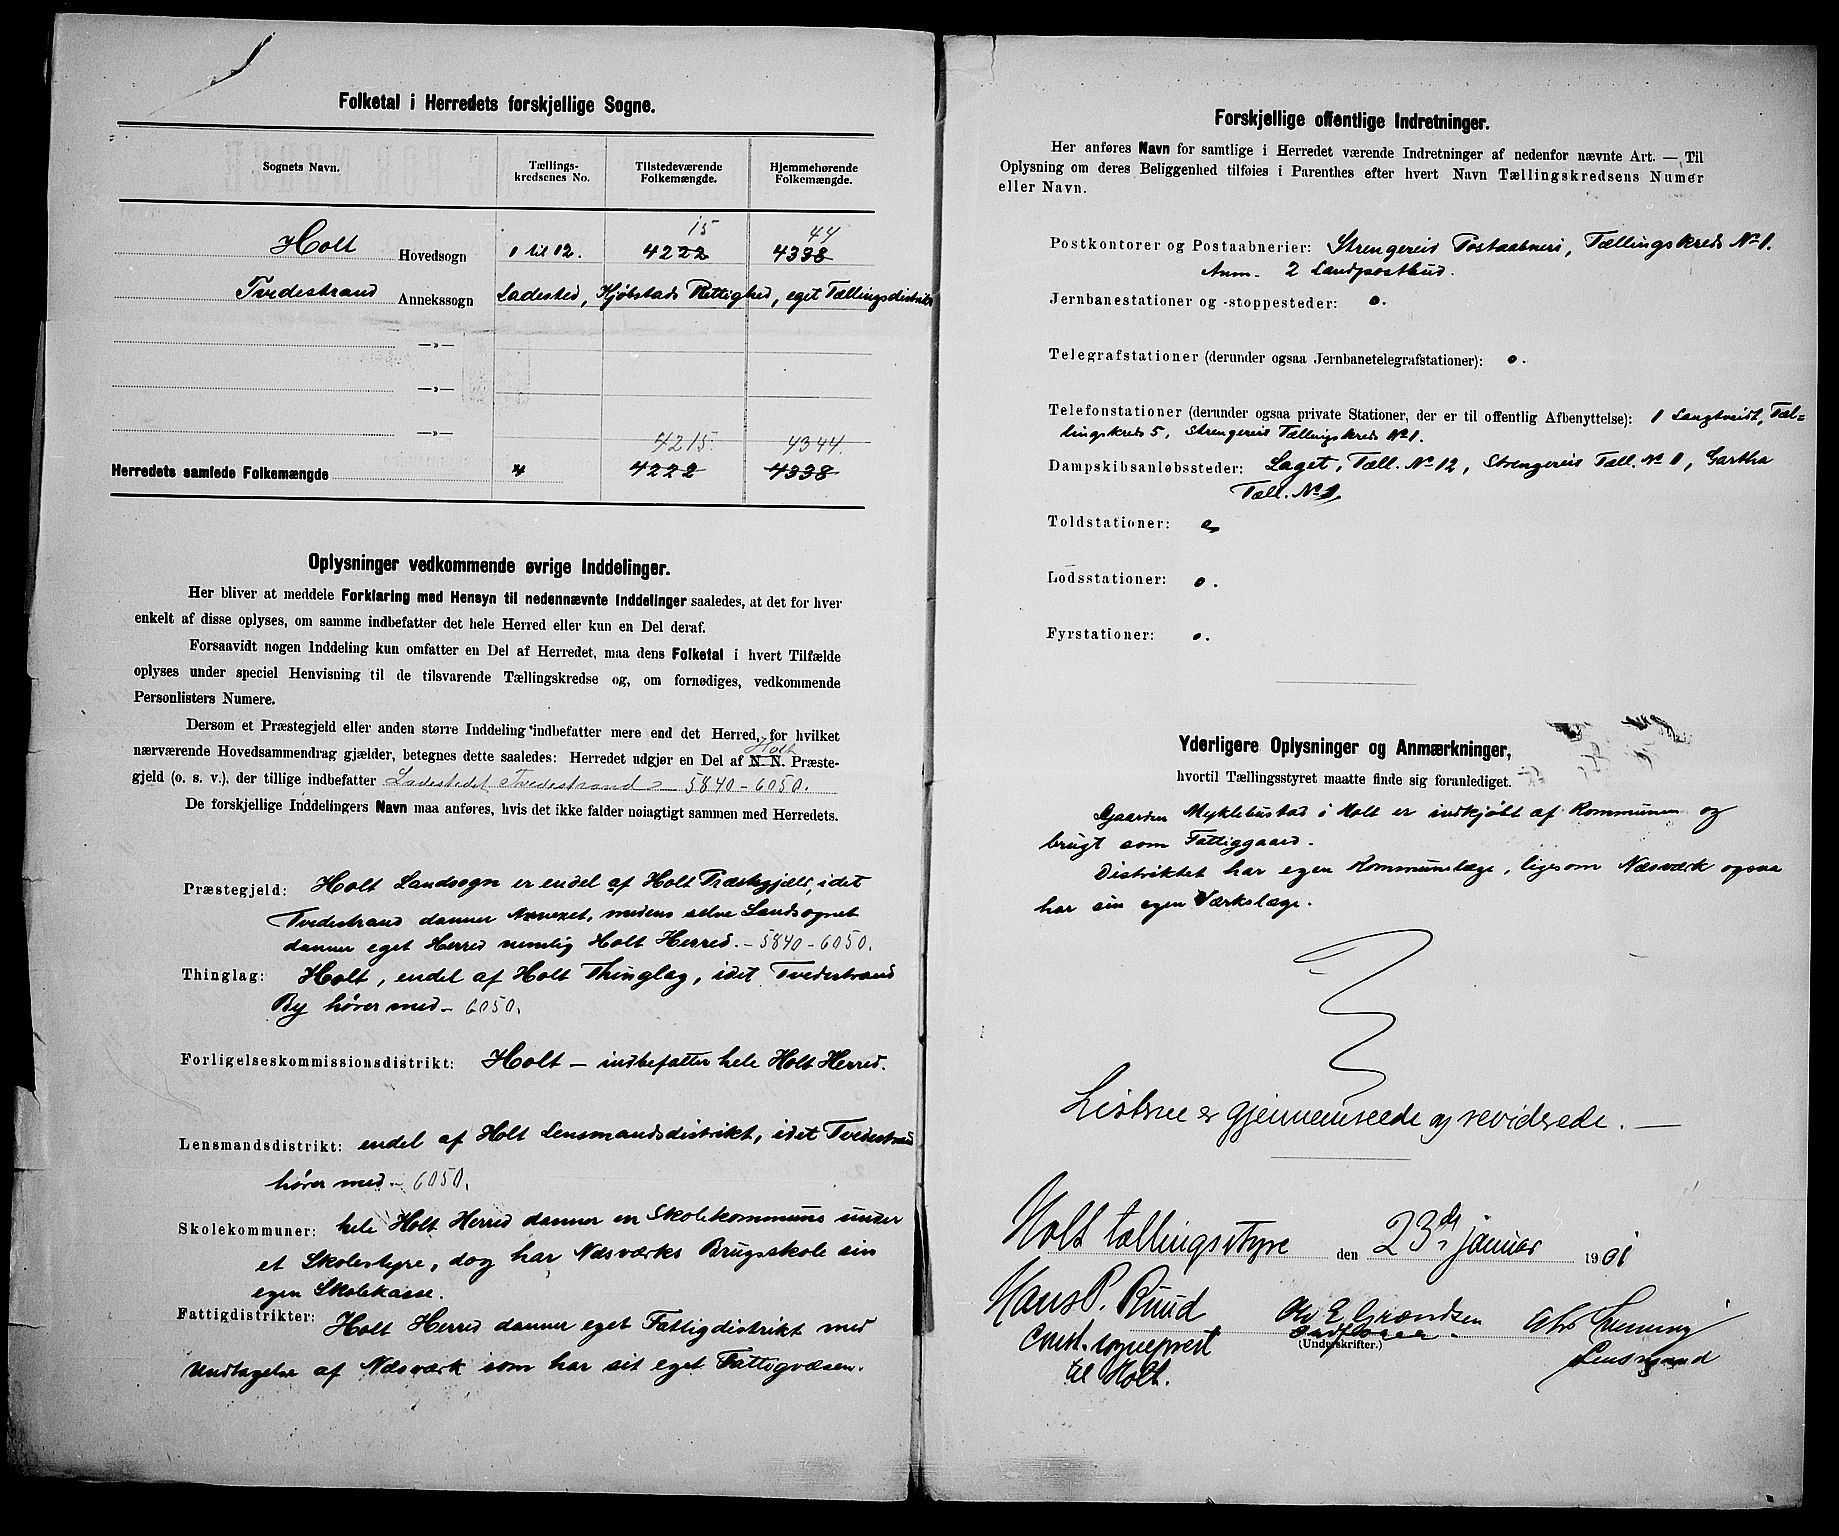 Folketal i Herredets forskjellige Sogne.
Sognets Navn. Tællings-kredsenes No. Tilstedeværende Folkemængde. Hjemmehørende Folkemængde.
15 44
Holt Hovedsogn 1 til 12. 4222 4338
Tvedestrand Annekssogn Ladested, Kjøbstads Rettighed, eget Tællingsdistrikt
—»—
—»—
—»—
4215. 4344.
Herredets samlede Folkemængde 4222 4338
Oplysninger vedkommende øvrige Inddelinger.
Her bliver at meddele Forklaring med Hensyn til nedennævnte Inddelinger saaledes, at det for hver
enkelt af disse oplyses, om samme indbefatter det hele Herred eller kun en Del deraf.
Forsaavidt nogen Inddeling kun omfatter en Del af Herredet, maa dens Folketal i hvert Tilfælde
oplyses under speciel Henvisning til de tilsvarende Tællingskredse og, om fornødiges, vedkommende
Personlisters Numere.
Dersom et Præstegjeld eller anden større Inddeling indbefatter mere end det Herred, for hvilket
Holt
nærværende Hovedsammendrag gjælder, betegnes dette saaledes: Herredet udgjør en Del af N. N. Præste-
gjeld (o. s. v.), der tillige indbefatter Ladestedet Tvedestrand - 5840 - 6050.
De forskjellige Inddelingers Navn maa anføres, hvis det ikke falder nøiagtigt sammen med Herredets.
Præstegjeld: Holt Landsogn er endel af Holt Præstegjæld, idet
Tvedestrand danner Annexet, medens selve Landsognet
danner eget Herred nemlig Holt Herred. - 5840 - 6050.
Thinglag: Holt, endel af Holt Thinglag, idet Tvedestrand
By hører med - 6050.
Forligelseskommissionsdistrikt: Holt — indbefatter hele Holt Herred.
Lensmandsdistrikt: endel af Holt Lensmandsdistrikt, idet Tvedestrand
hører med - 6050.
Skolekommuner: hele Holt Herred danner en Skolekommune under
et Skolestyre, dog har Næsværks Brugsskole sin
egen Skolekasse.
Fattigdistrikter: Holt Herred danner eget Fattigdistrikt med
Undtagelse af Næsværk som har sit eget Fattigvæsen.
Forskjellige offentlige Indretninger.
Her anføres Navn for samtlige i Herredet værende Indretninger af nedenfor nævnte Art. — Til
Oplysning om deres Beliggenhed tilføies i Parenthes efter hvert Navn Tællingskredsens Numer
eller Navn.
Postkontorer og Postaabnerier: Strengereid Postaabneri, Tællingskreds No 1.
Anm. 2 Landpostbud.
Jernbanestationer og -stoppesteder: 0.
Telegrafstationer (derunder ogsaa Jernbanetelegrafstationer): 0.
Telefonstationer (derunder ogsaa private Stationer, der er til offentlig Afbenyttelse): 1 Langtveidt, Tæl-
lingskreds 5, Strengereid Tællingskreds No 1.
Dampskibsanløbssteder: Laget, Tæll. No 12, Strengereid Tæll. No 1, Gartha
Tæll. No 1,
Toldstationer: 0
Lodsstationer: 0.
Fyrstationer: 0.
Yderligere Oplysninger og Anmærkninger,
hvortil Tællingsstyret maatte finde sig foranlediget.
Gaarden Myklebustad i Holt er indkjøbt af Kommunen og
brugt som Fattiggaard.
Distriktet har egen Kommunelæge, ligesom Næsværk ogsaa
har sin egen Værkslæge.
Listerne er gjennemseede og reviderede. —
Holt tællingsstyre den 23de januar 1901
Hans P. Ruud
Const. sogneprest
til Holt.
(Underskrifter.)
Lensmand